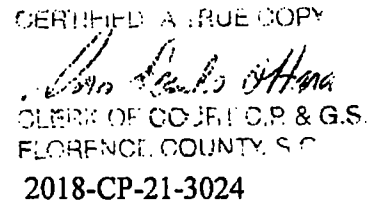 CERTIFIED A TRUE COPY
CLERK OF COURT C.P. & G.S.
FLORENCE COUNTY, S.C.
2018-CP-21-3024